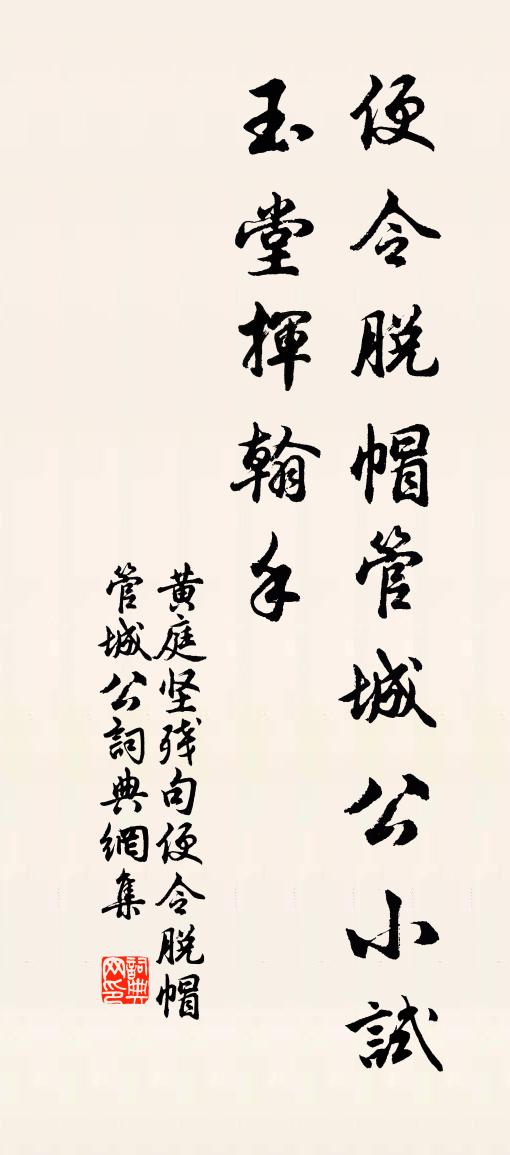 便令脱帽管城公小試
玉堂揮翰手
黄庭坚残句便令脱帽
管城公詞典網集
詞典网印